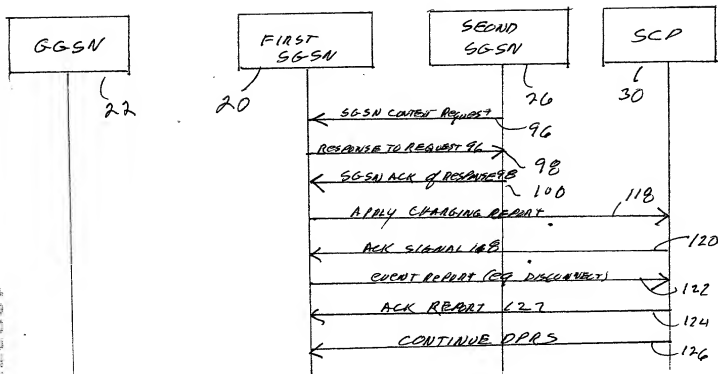 GGSN
22
FIRST
SGSN
20
SEOND
SGSN
26
SCP
30
SGSN CONTEXT REQUEST
96
RESPONSE TO REQUEST 96
98
SGSN ACK of RESPONSE 98
100
APPLY CHARGING REPORT
118
ACK SIGNAL 118
120
EVENT REPORT (eg DISCONNECT)
122
ACK REPORT 122
124
CONTINUE DPRS
126